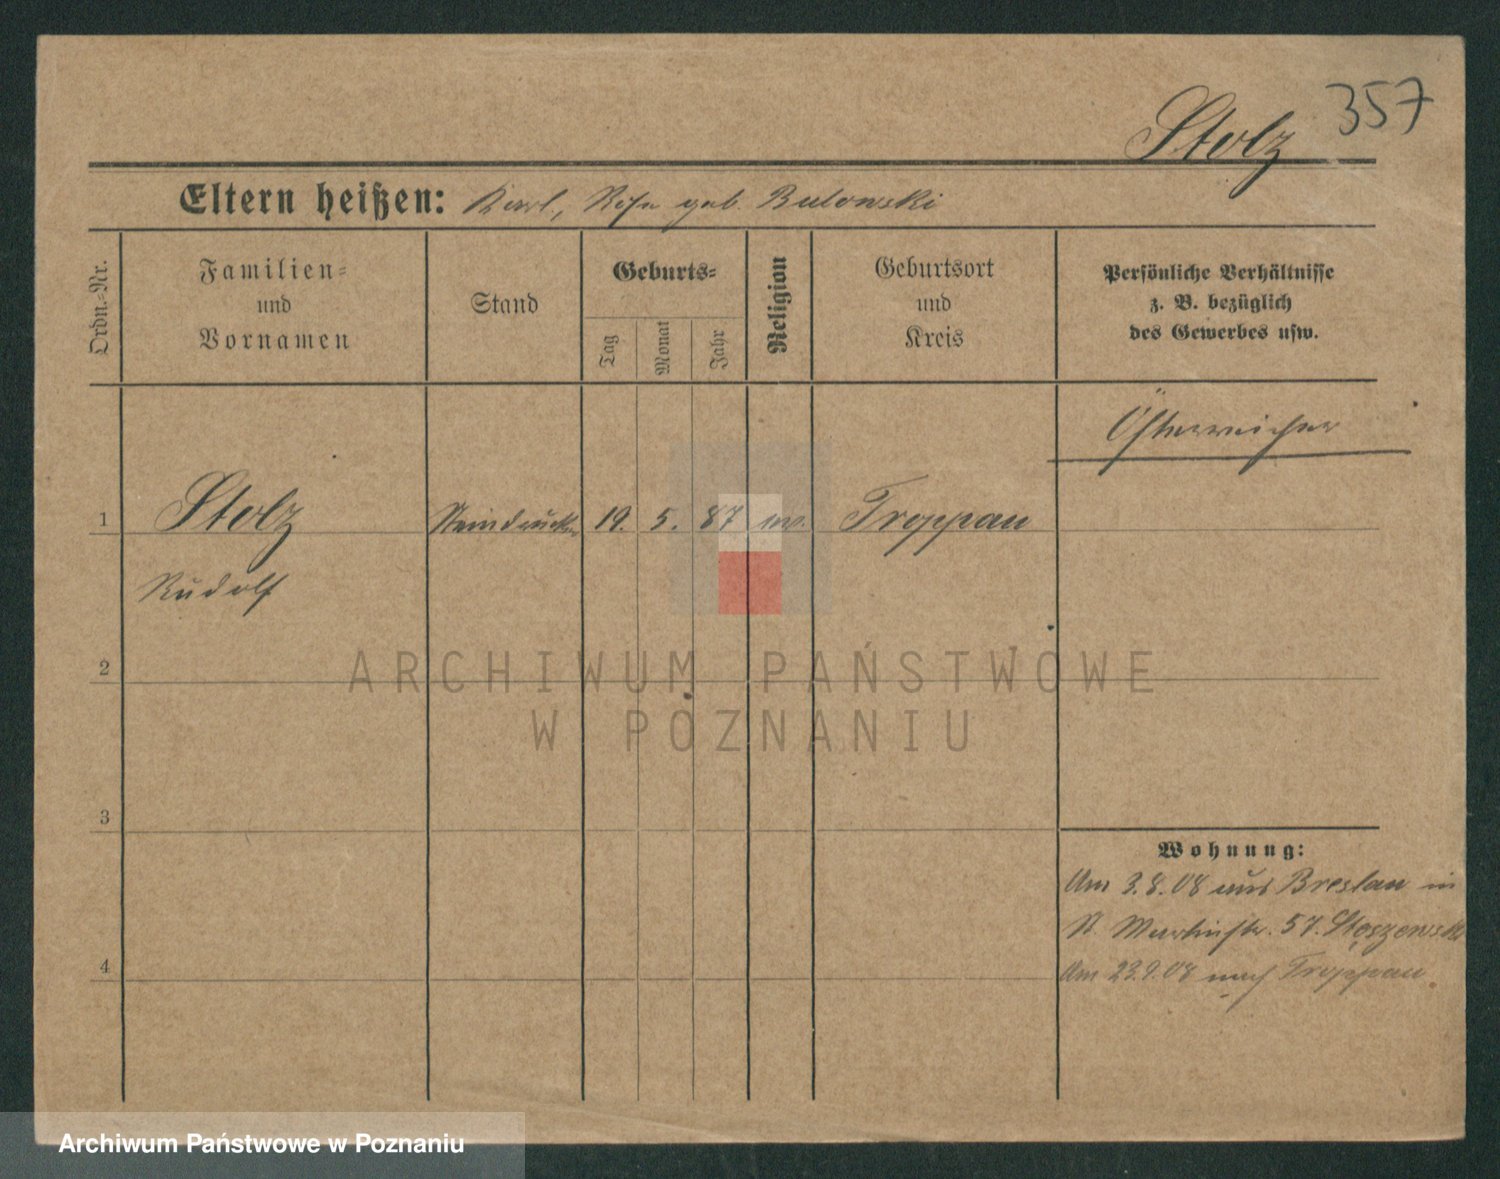 Stolz 357
Eltern heißen: Karl, Rosa geb. Bulowski
Ordn.-Nr.
Familien-
und
Vornamen
Stand
Geburts-
Tag
Monat
Jahr
Religion
Geburtsort
und
Kreis
Persönliche Verhältnisse
z. B. bezüglich
des Gewerbes usw.
Österreicher
1 Stolz Steindrucker 19. 5. 87 Troppau
Rudolf
2
ARCHIWUM PAŃSTWOWE
W POZNANIU
3
Wohnung:
Am 3.8.08 aus Breslau in
St. Martinstr. 57.
4
Am 23.9.08 nach Troppau
Archiwum Państwowe w Poznaniu